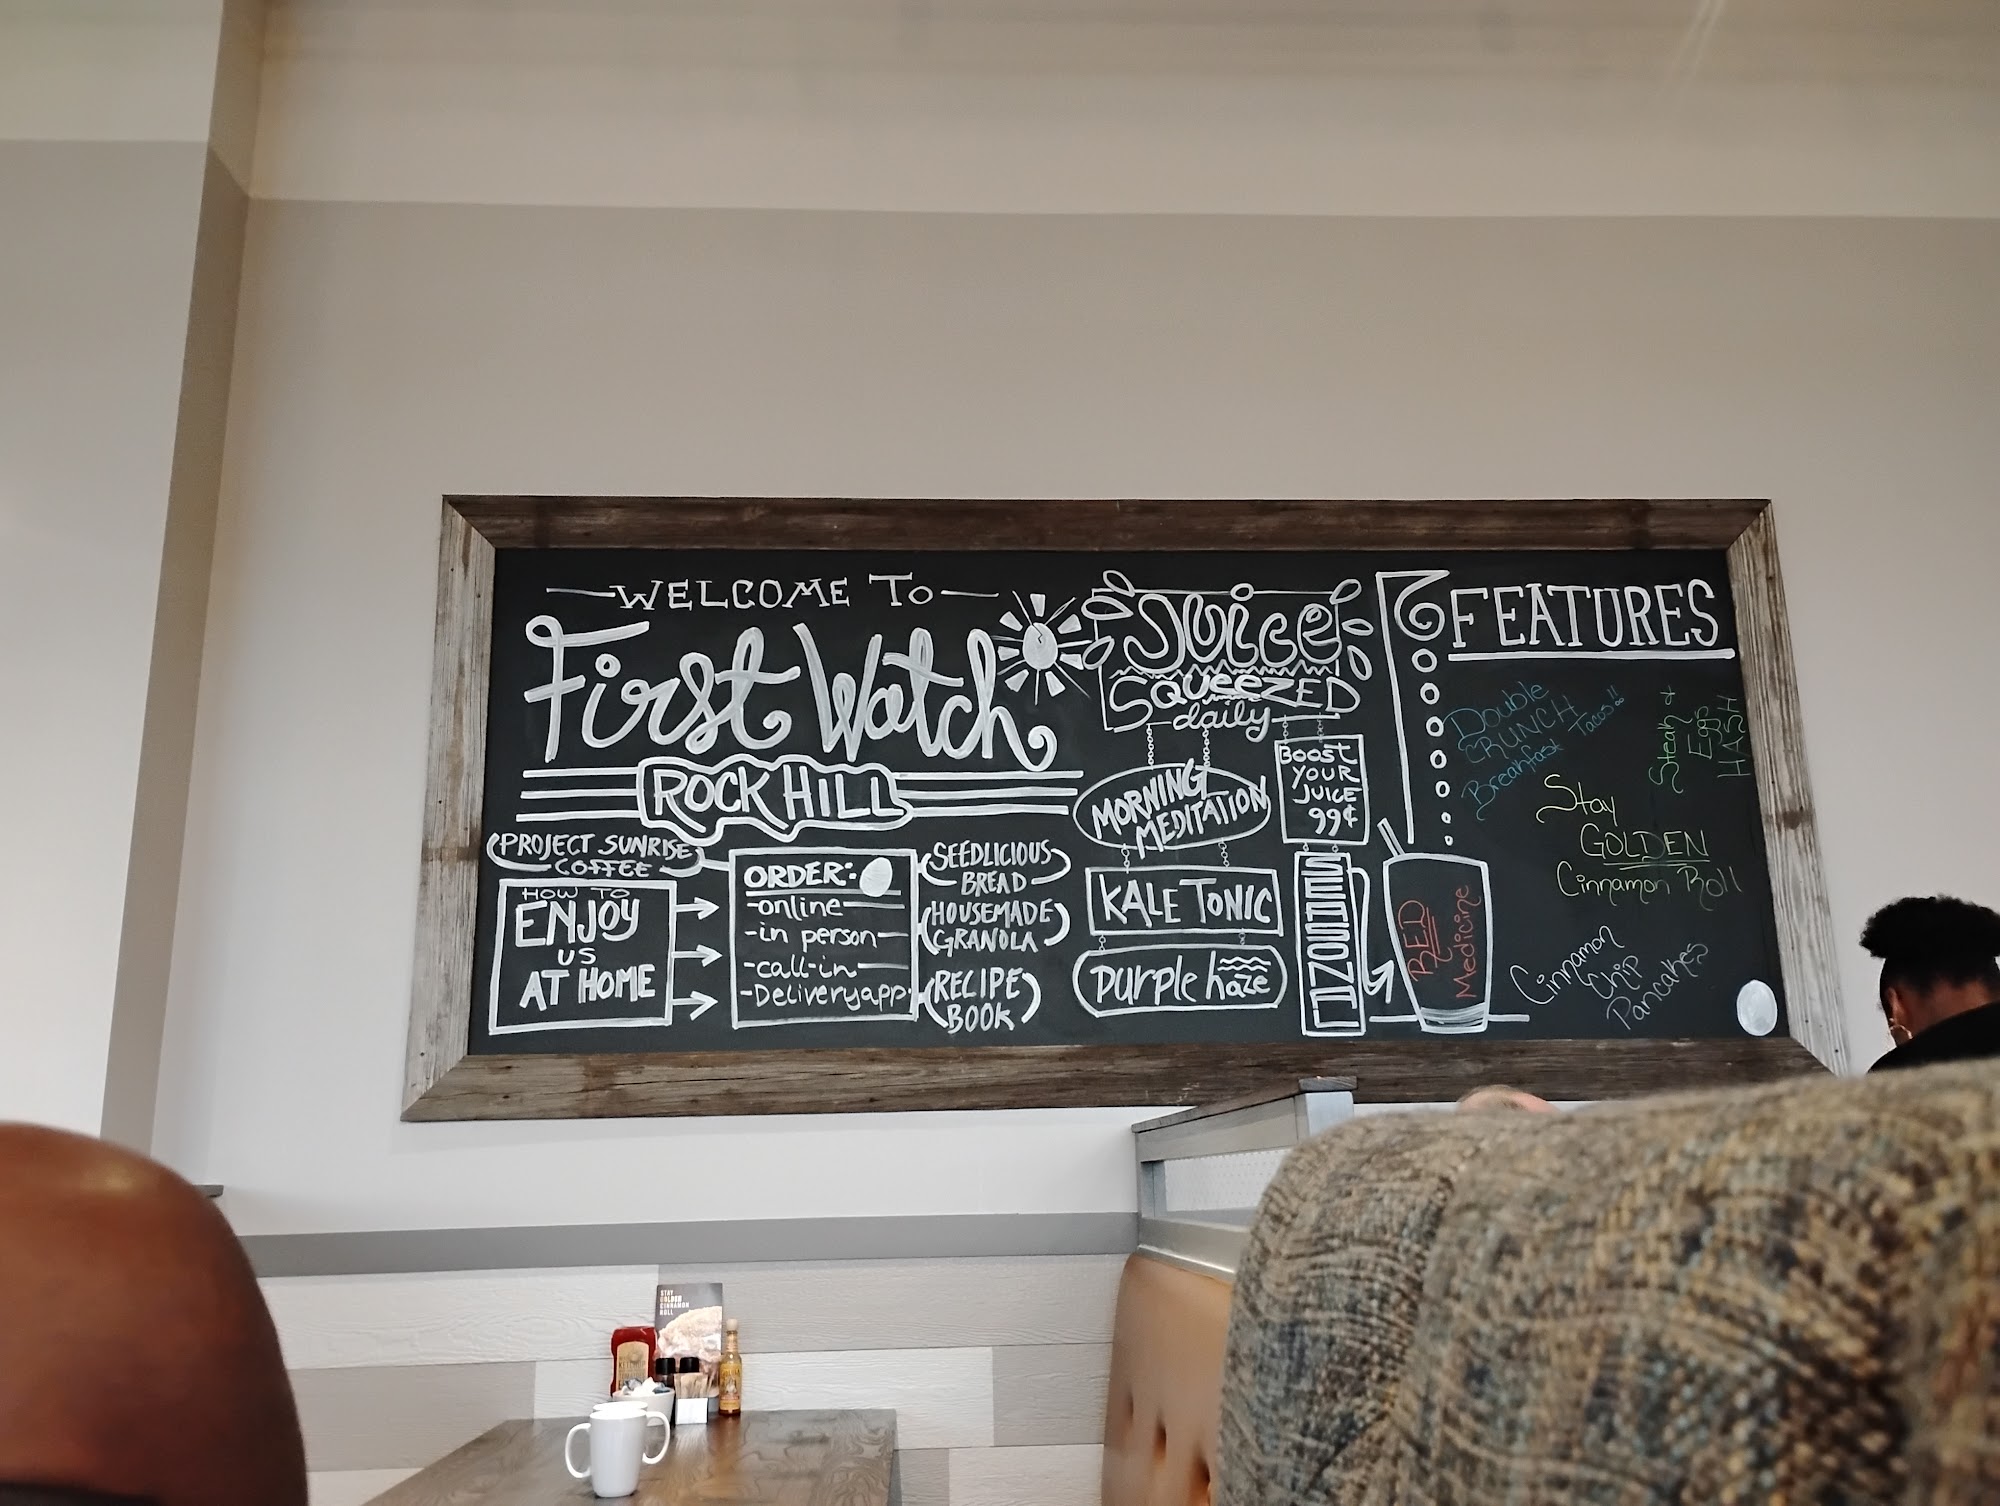 WELCOME TO
First Watch
ROCK HILL
PROJECT SUNRISE
COFFEE
HOW TO
ENJOY
US
AT HOME
ORDER:
-online
-in person
-call-in
-Delivery app
SEEDLICIOUS
BREAD
HOUSEMADE
GRANOLA
RECIPE
BOOK
Juice
SQUEEZED
daily
MORNING
MEDITATION
KALE TONIC
purple haze
BOOST
YOUR
JUICE
99¢
FEATURES
Double
CRUNCH
Breakfast Tacos!!
Steak &
Eggs
HASH
Stay
GOLDEN
Cinnamon Roll
Cinnamon
Chip
Pancakes
RED
Medicine
STAY
GOLDEN
CINNAMON
ROLL